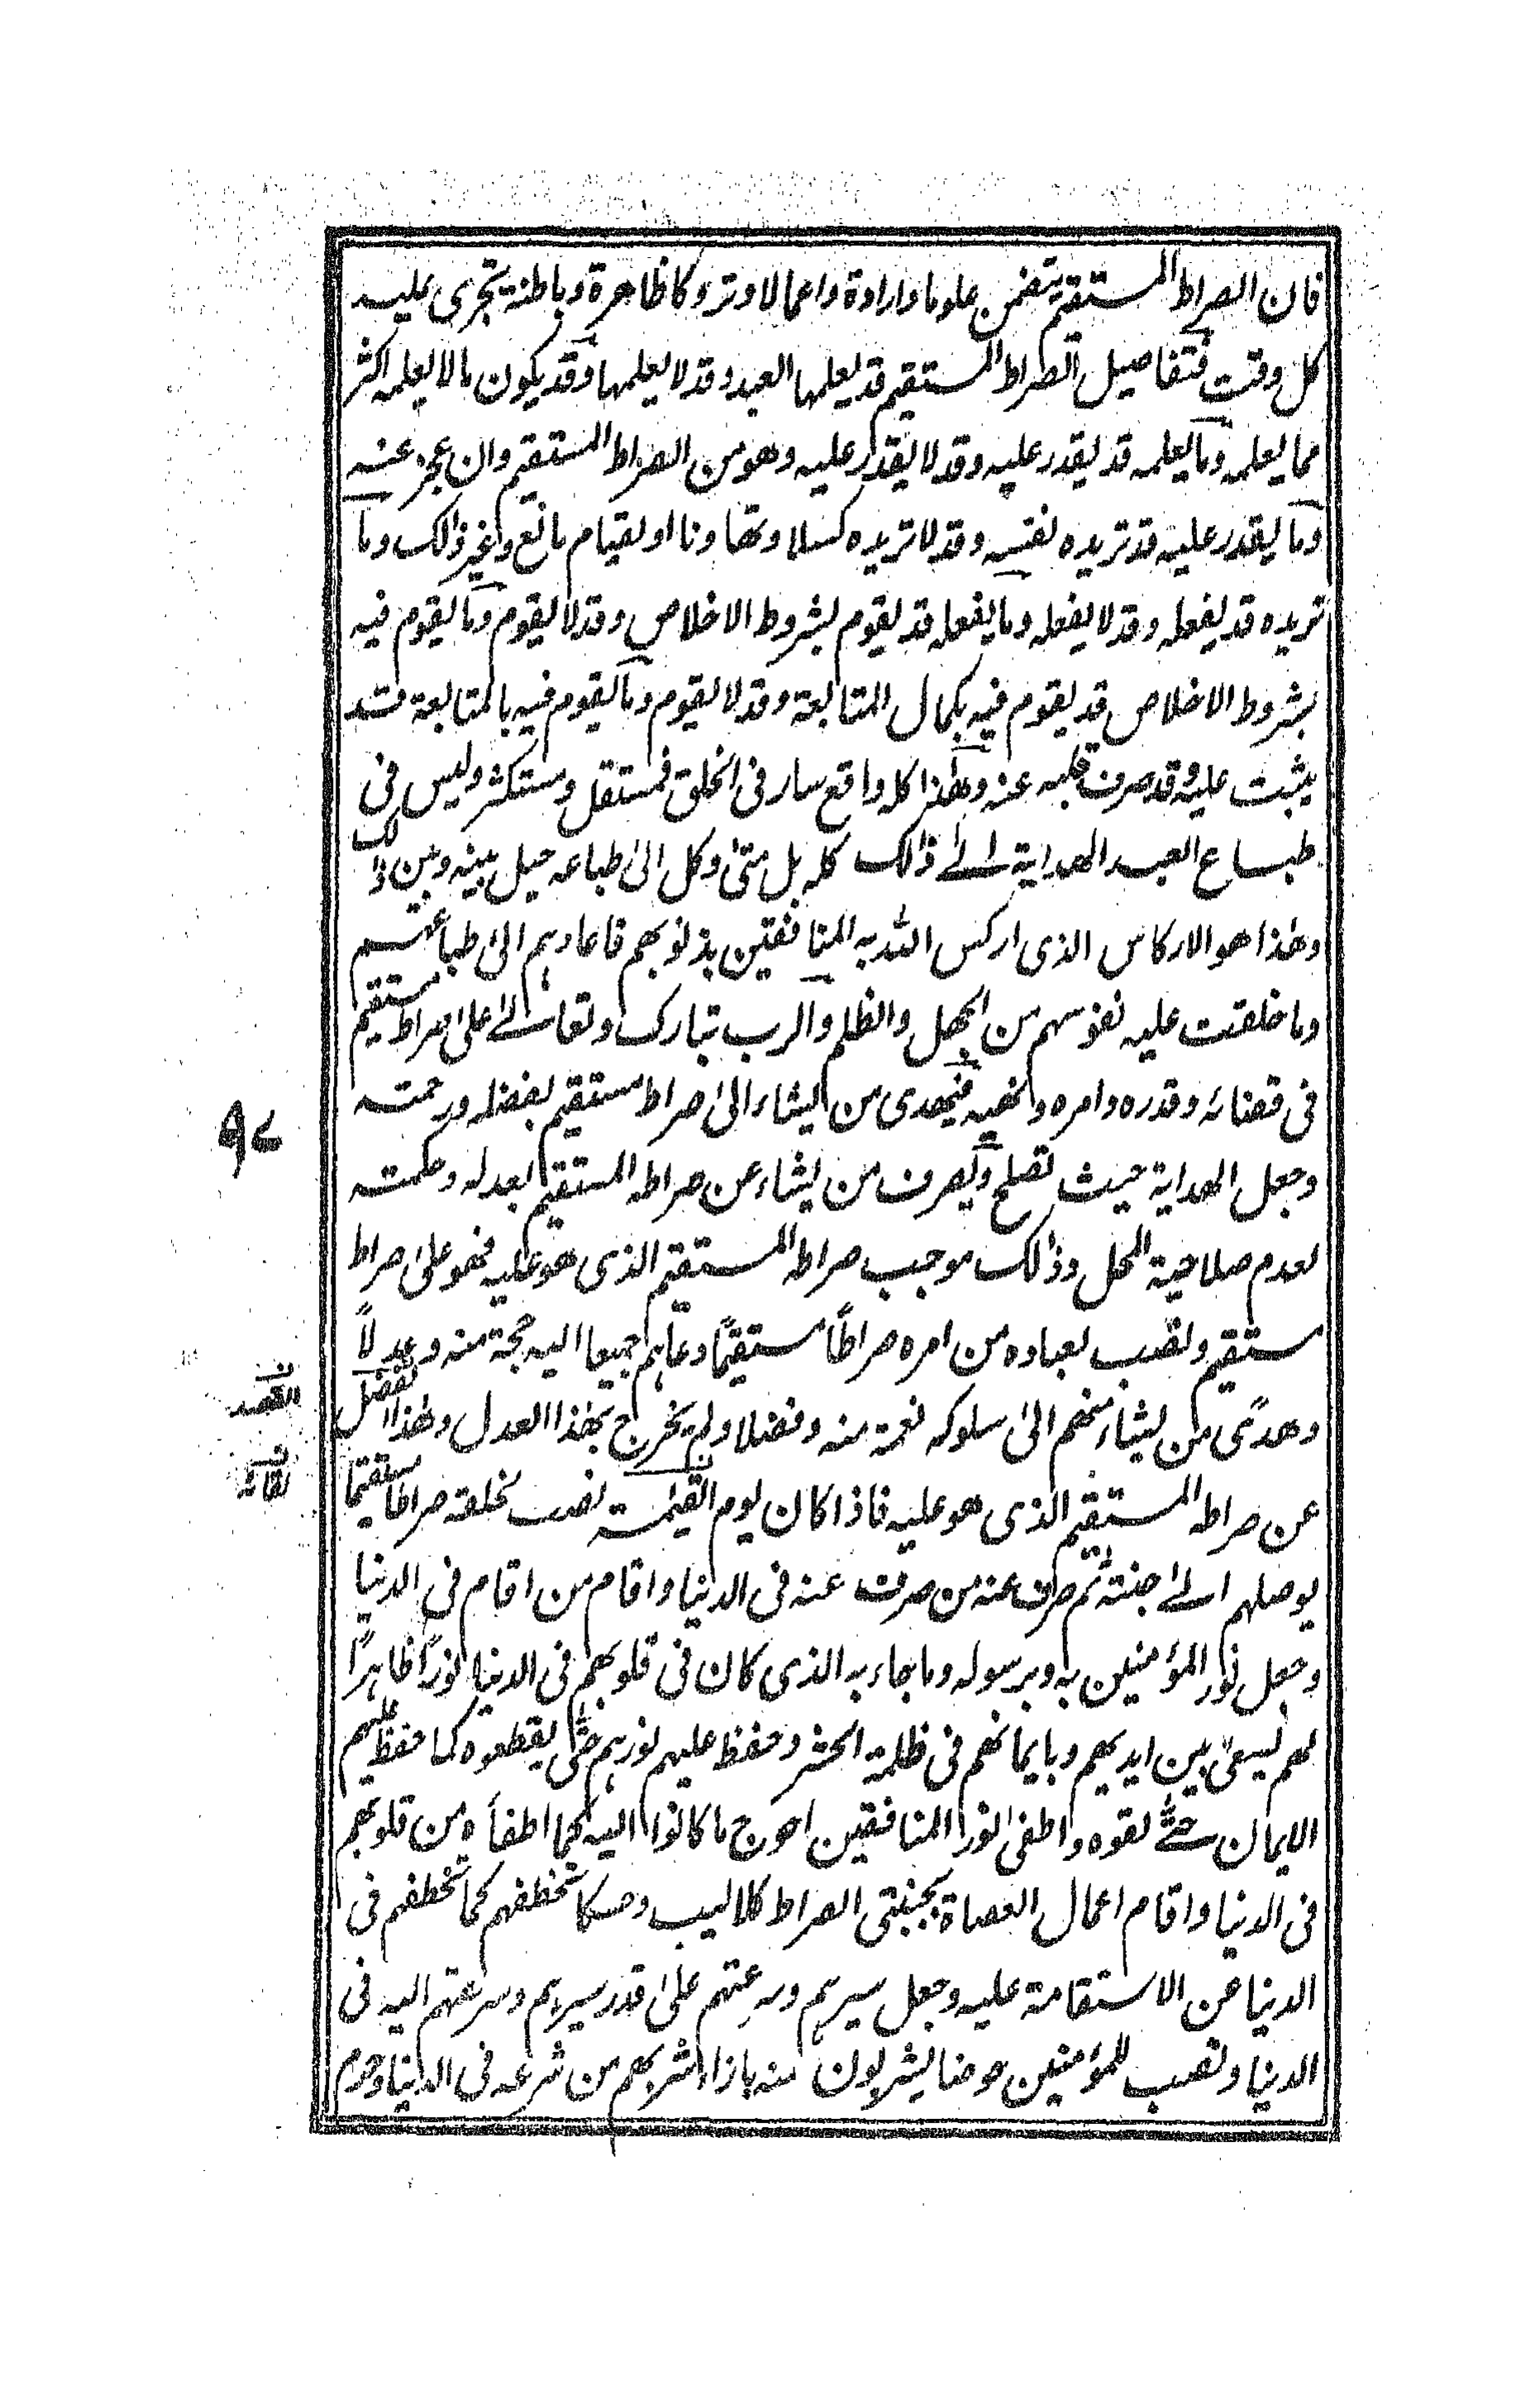 فان الصراط المستقيم يتضمن علوما وارادة واعمالا وتروكا ظاهرة وباطنة تجرى عليه
كل وقت فتفاصيل الصراط المستقيم قد يعلمها العبد وقد لا يعلمها وقد يكون ما لا يعلمه اكثر
مما يعلمه وما يعلمه قد يقدر عليه وقد لا يقدر عليه وهو من الصراط المستقيم وان عجز عنه
وما يقدر عليه قد تريده نفسه وقد لا تريده كسلا وتهاونا او لقيام مانع وغير ذالك وما
تريده قد يفعله وقد لا يفعله وما يفعله قد يقوم بشروط الاخلاص وقد لا يقوم وما يقوم فيه
بشروط الاخلاص قد يقوم فيه بكمال المتابعة وقد لا يقوم وما يقوم فيه بالمتابعة قد
يثبت عليه وقد صرف قلبه عنه وهذا كله واقع سار فى الخلق فمستقل ومستكثر وليس فى
طباع العبد الهداية الى ذالك كله بل متى وكل الى طباعه حيل بينه وبين ذالك
وهذا هو الاركاس الذى اركس الله به المنافقين بذنوبهم فاعادهم الى طباعهم
وما خلقت عليه نفوسهم من الجهل والظلم والرب تبارك وتعالى على صراط مستقيم
فى قضائه وقدره وامره ونهيه فيهدى من يشاء الى صراط مستقيم بفضله ورحمته
وجعل الهداية حيث تصلح ويصرف من يشاء عن صراطه المستقيم بعدله وحكمته
لعدم صلاحية المحل وذالك موجب صراطه المستقيم الذى هو عليه فهو على صراط
مستقيم ونصب لعباده من امره صراطاً مستقيماً دعاهم جميعا اليه حجة منه وعدلاً
وهدىً من يشاء منهم الى سلوكه نعمة منه وفضلا ولم يخرج بهذا العدل وهذا الفضل
عن صراطه المستقيم الذى هو عليه فاذا كان يوم القيٰمة نصب لخلقه صراطا مستقيما
يوصلهم الى جنته ثم صرف عنه من صرف عنه فى الدنيا واقام من اقام فى الدنيا
وجعل نور المؤمنين به وبرسوله وما جاء به الذى كان فى قلوبهم فى الدنيا نوراً ظاهراً
لهم يسعى بين ايديهم وبايمانهم فى ظلمة الحشر وحفظ عليهم نورهم حتى يقطعوه كما حفظ عليهم
الايمان حتى لقوه واطفى نور المنافقين احوج ما كانوا اليه كما اطفأه من قلوبهم
فى الدنيا واقام اعمال العصاة بجنبتى الصراط كلاليب وحسكا تخطفهم كما تخطفهم فى
الدنيا عن الاستقامة عليه وجعل سيرهم وسرعتهم على قدر سيرهم وسرعتهم اليه فى
الدنيا ونصب للمؤمنين حوضا يشربون منه بازاء شربهم من شرعه فى الدنيا وحرم
٩٧